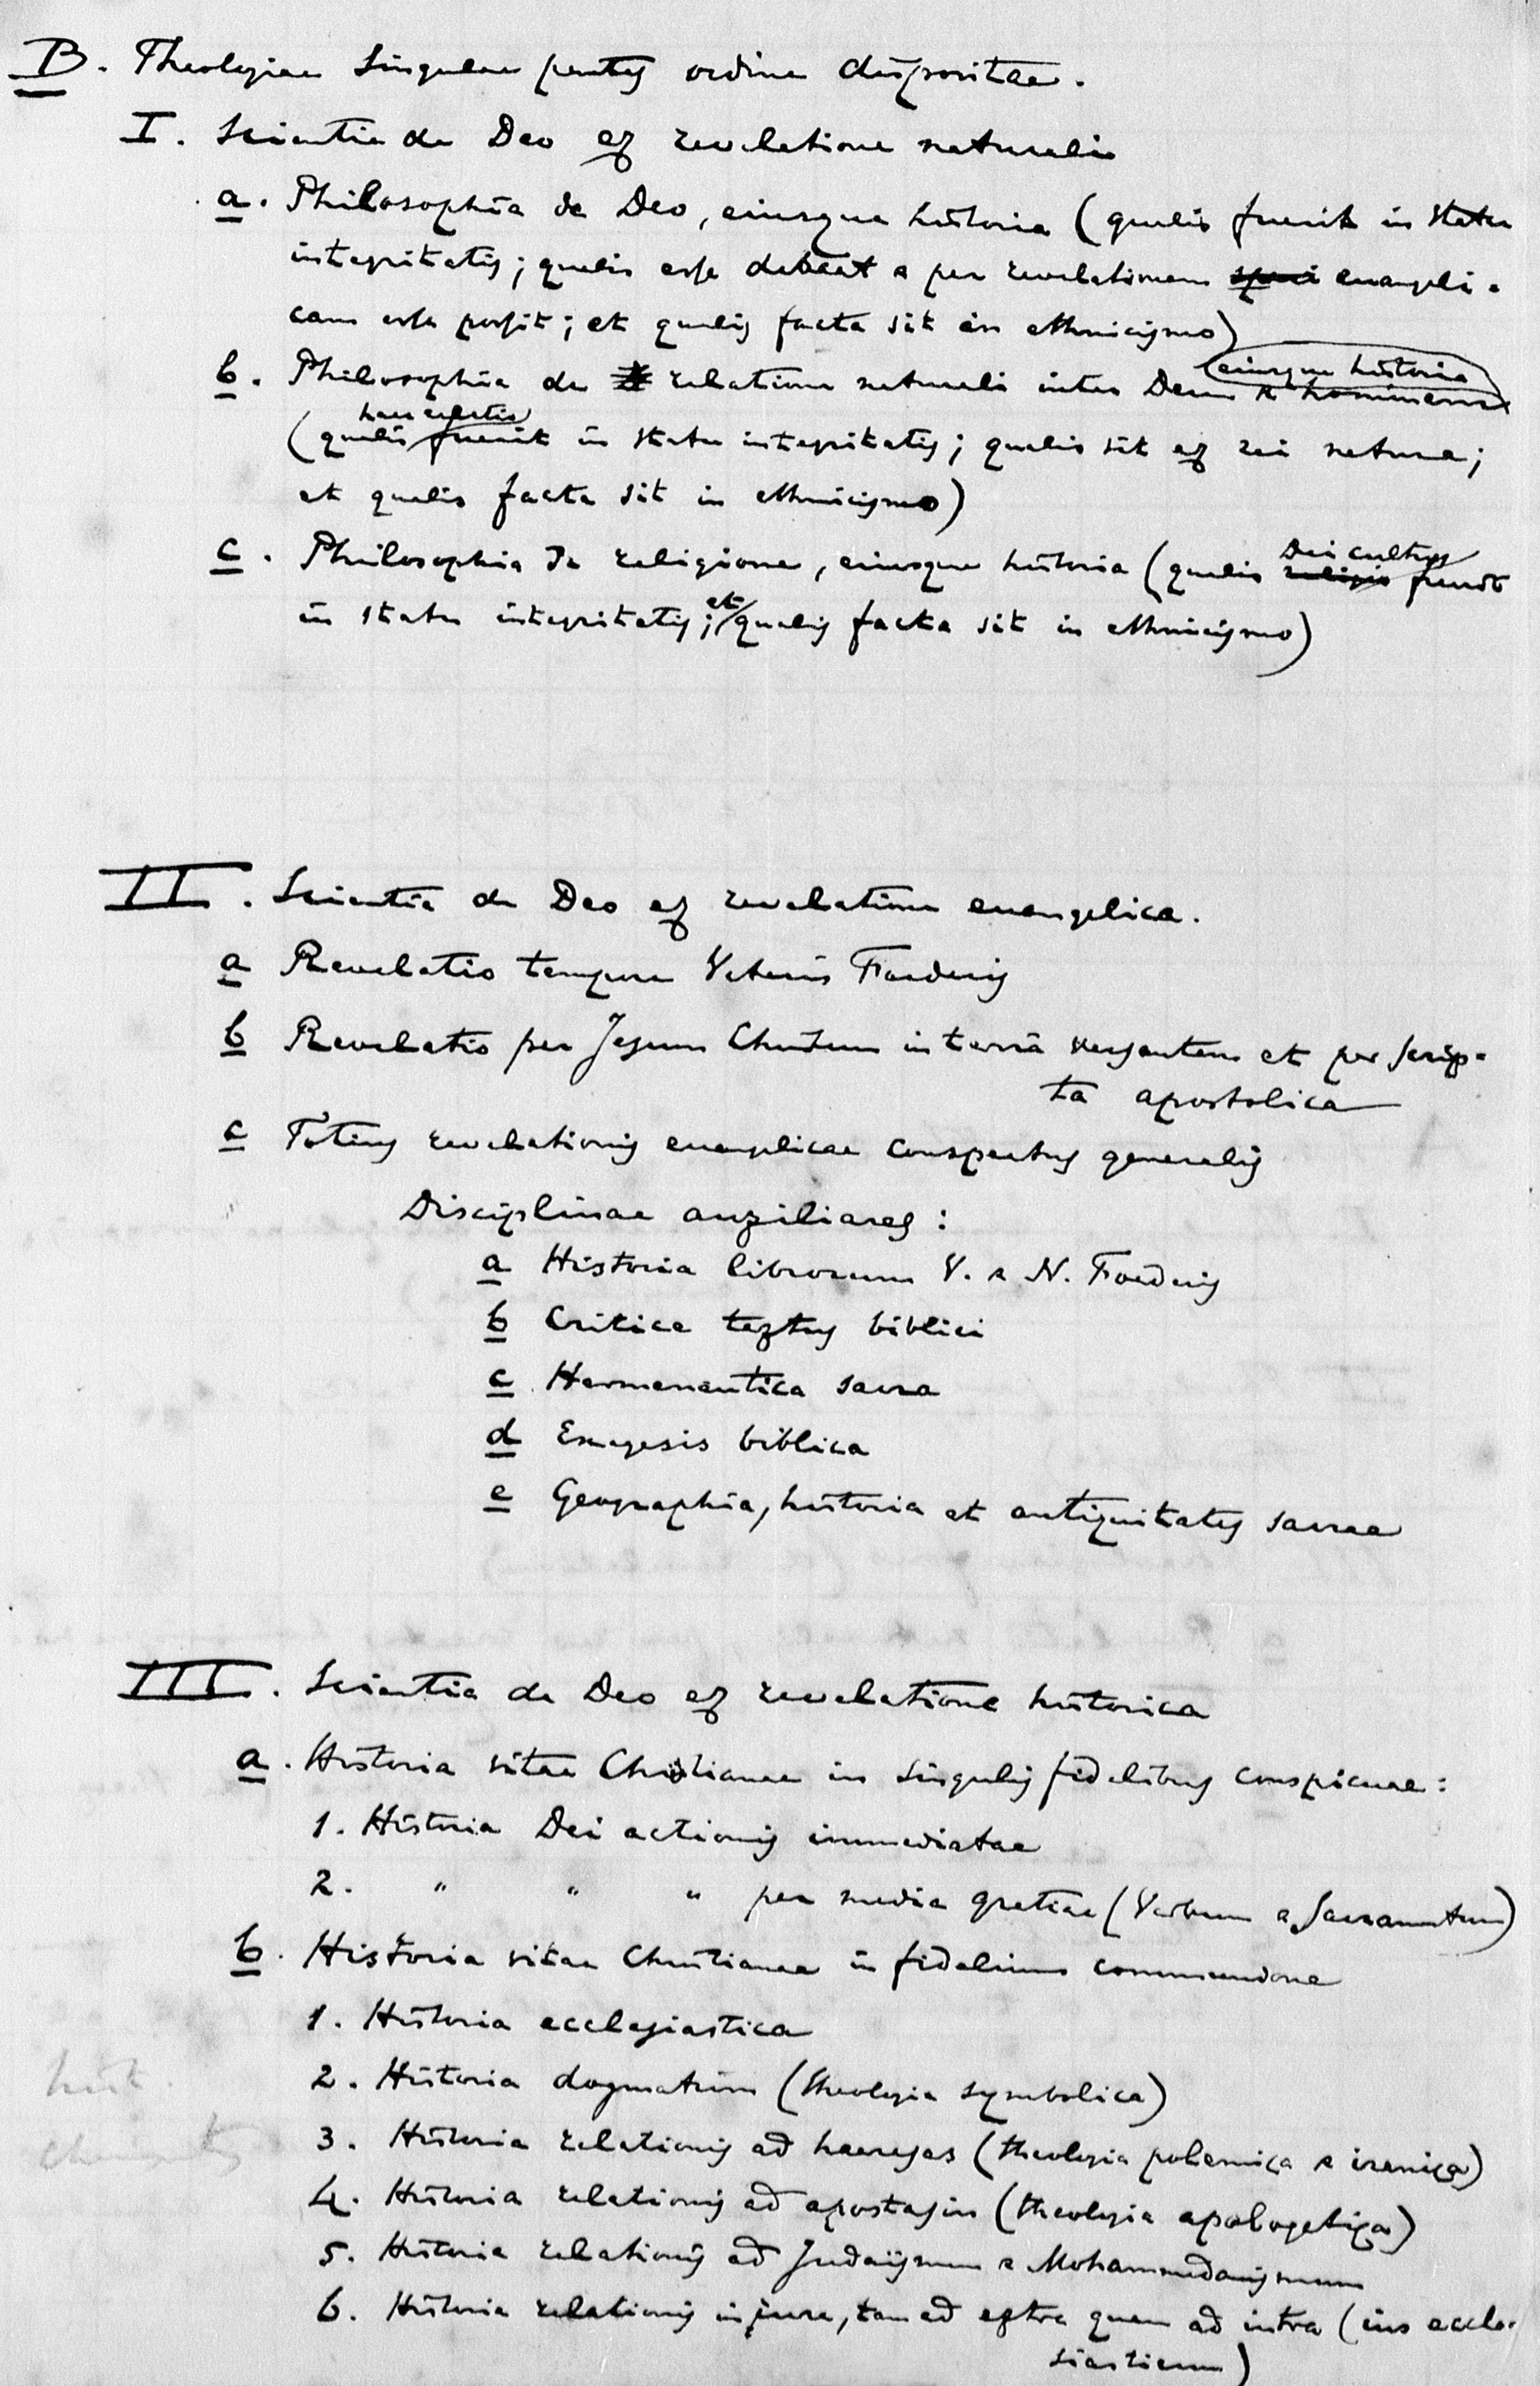 B. Theologiae singulae partes ordine dispositae.
I. Scientia de Deo ex revelatione naturali
a. Philosophia de Deo, eiusque historia (qualis fuerit in statu
integritatis; qualis esse debeat & per revelationem evangeli-
cam esse possit; et qualis facta sit in ethnicismo)
eiusque historia
b. Philosophia de relatione naturali inter Deum & hominem
haec relatio
(qualis fuerit in statu integritatis; qualis sit ex rei natura;
et qualis facta sit in ethnicismo)
Dei cultus
c. Philosophia de religione, eiusque historia (qualis religio fuerit
in statu integritatis; et qualis facta sit in ethnicismo)
II. Scientia de Deo ex revelatione evangelica.
a Revelatio tempore Veteris Foederis
b Revelatio per Jesum Christum in terra versantem et per scrip-
ta apostolica
c Totius revelationis evangelicae conspectus generalis
Disciplinae auxiliares:
a Historia librorum V. & N. Foederis
b Critica textus biblici
c Hermeneutica sacra
d Exegesis biblica
e Geographia, historia et antiquitates sacrae
III. Scientia de Deo ex revelatione historica
a. Historia vitae Christianae in singulis fidelibus conspicuae:
1. Historia Dei actionis immediatae
2. " " " per media gratiae (Verbum & Sacramentum)
b. Historia vitae Christianae in fidelium communione
1. Historia ecclesiastica
2. Historia dogmatum (theologia symbolica)
hist.
3. Historia relationis ad haereses (theologia polemica & irenica)
4. Historia relationis ad apostasin (theologia apologetica)
5. Historia relationis ad Judaïsmum & Mohammedanismum
6. Historia relationis in jure, tam ad extra quam ad intra (ius eccle-
siasticum)